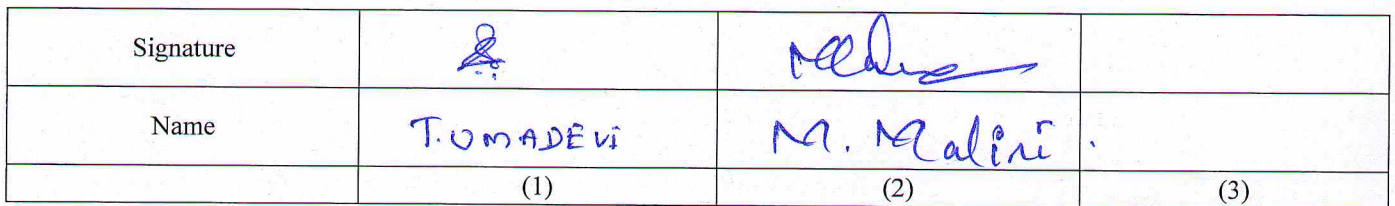 Signature
Name T. UMADEVI M. Malini .
(1) (2) (3)